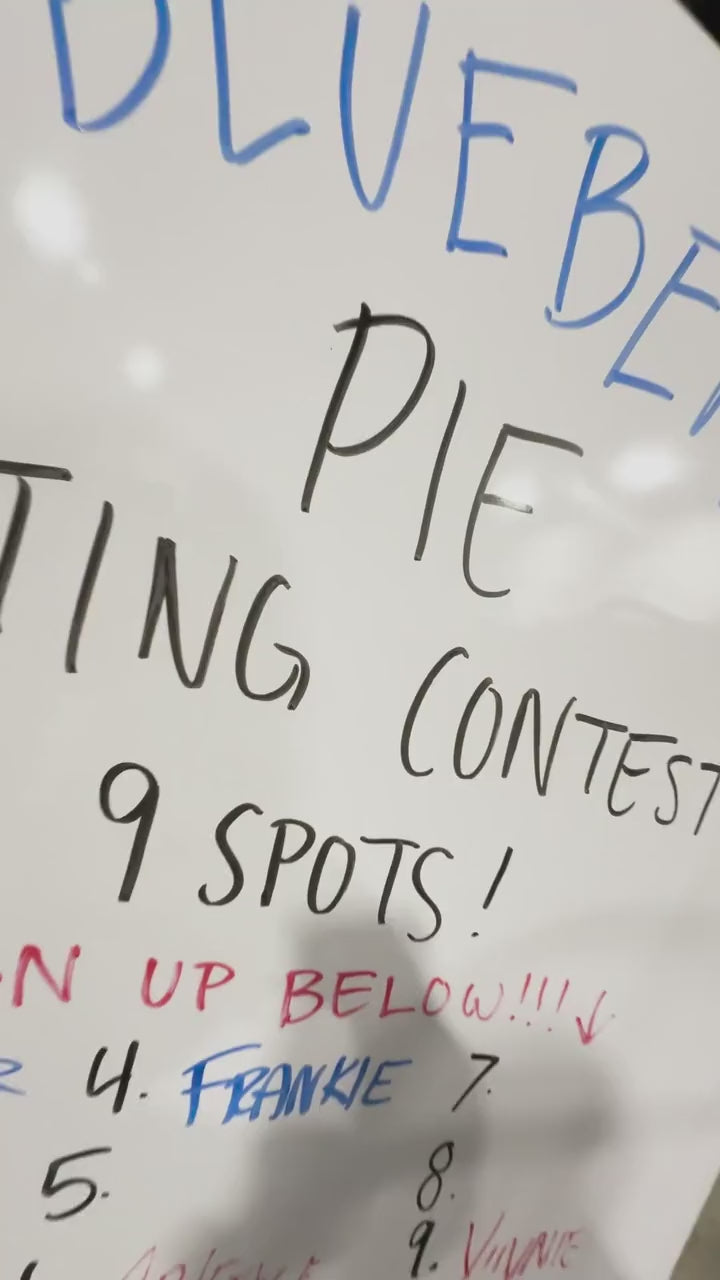 BLUEBE
PIE
TING CONTEST
9 SPOTS!
N UP BELOW!!!↓
4. FRANKIE 7.
5. 8.
9. VINNIE